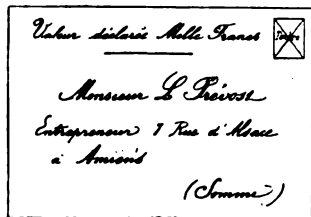 Valeur déclarée Mille Francs
Timbre
Monsieur Le Prévost
Entrepreneur 7 Rue d'Alsace
à Amiens
(Somme)